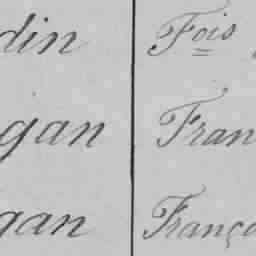 din Fois
gan Fran
gan França